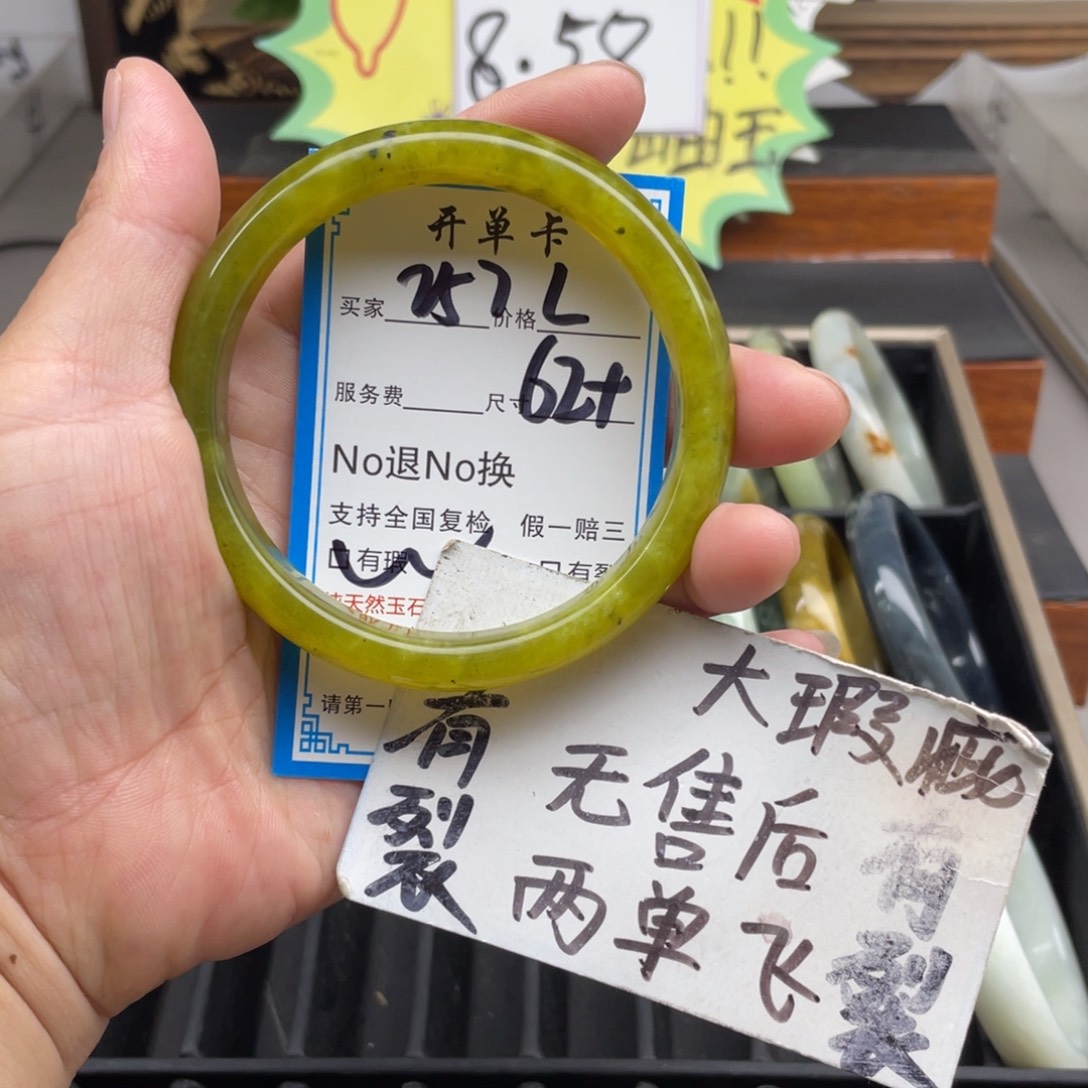 8.58
!!!
岫玉
开单卡
买家 257 价格 L
服务费 尺寸 62+
No退No换
支持全国复检 假一赔三
口有瑕 口有裂
纯天然玉石
请第一
大瑕疵
有裂
无售后
两单飞
有裂